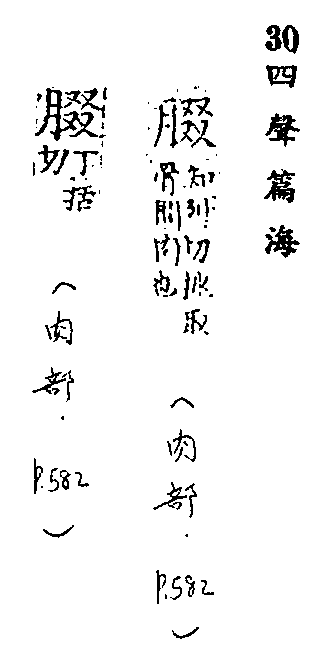 30四聲篇海
腏知劣切挑取骨間肉也(肉部.P.582)
腏丁括切(肉部.P.582)